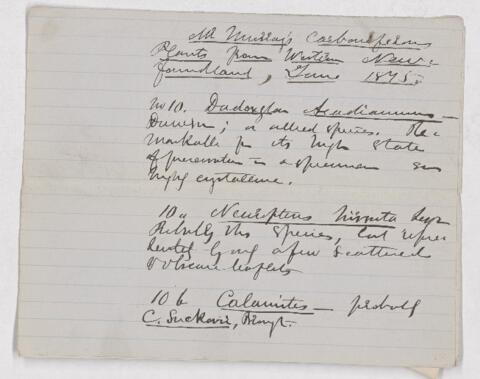 Mr Murray's Carboniferous
Plants from Western New-
foundland, June 1875.
No 10. Dadoxylon Acadianum —
Dawson; or allied species. Re-
markable for its high state
of preservation in a specimen so
highly crystalline.
10a Neuropteris hirsuta Lesqx
Probably this species, but repre-
sented by only a few scattered
& obscure leaflets
10 b Calamites — probably
C. Suckovii, Brongt.